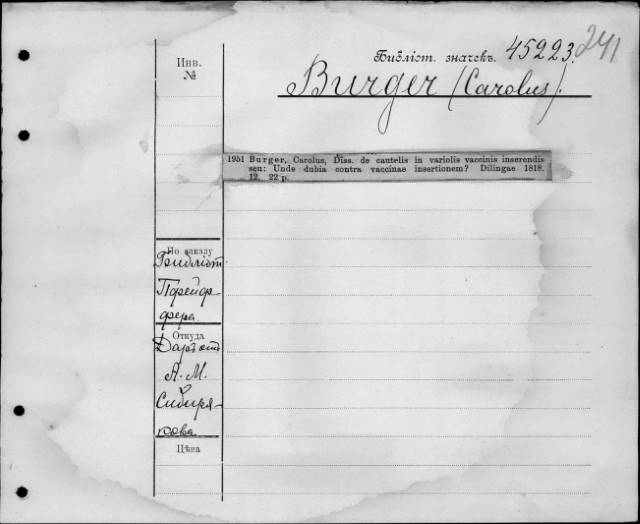 Инв.
№
Библіот. значекъ. 45223. 241
Burger (Carolus).
1951 Burger, Carolus, Diss. de cautelis in variolis vaccinis inserendis
seu: Unde dubia contra vaccinae insertionem? Dilingae 1818.
12. 22 p.
По заказу
Библіот.
Пфейф-
фера
Откуда
Даръ отъ
А. М.
Сибиря-
кова
Цѣна